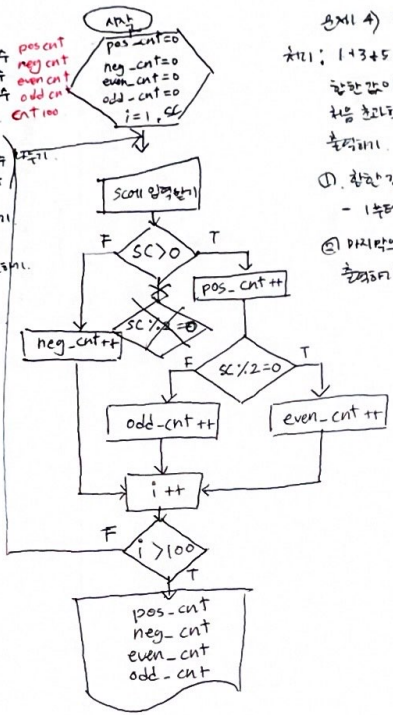 시작
pos_cnt=0
neg_cnt=0
even_cnt=0
odd_cnt=0
i=1, sc
수 pos cnt
neg cnt
even cnt
수 odd cn
cnt 100
sc에 입력받기
SC>0
F
T
pos_cnt++
neg_cnt++
SC%2=0
F
T
odd_cnt++
even_cnt++
i++
i>100
F
T
pos_cnt
neg_cnt
even_cnt
odd_cnt
문제 4)
처리: 1+3+5
합한 값이
처음 초과한
출력하기.
①. 합한 값
- 1부터
② 마지막으
출력하기